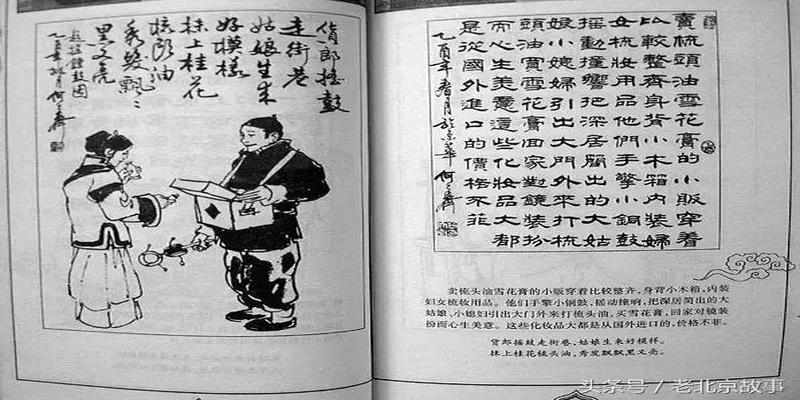 貨郎搖鼓
走街巷
姑娘生来
好模樣
抹上桂花
梳頭油
秀髮飄〻
黑又亮
賣梳頭油雪花膏的小販穿着
比較整齊身背小木箱内裝婦
女梳妝用品他們手擎小銅鼓
搖動撞響把深居簡出的大姑
娘小媳婦引出大門外來打梳
頭油買雪花膏回家對鏡裝扮
而心生美意這些化妝品大都
是從國外進口的價格不菲
乙酉年春月於京華何大齊
卖梳头油雪花膏的小贩穿着比较整齐,身背小木箱,内装
妇女梳妆用品。他们手擎小铜鼓,摇动撞响,把深居简出的大
姑娘、小媳妇引出大门外来打梳头油,买雪花膏,回家对镜装
扮而心生美意。这些化妆品大都是从国外进口的,价格不菲。
货郎摇鼓走街巷,姑娘生来好模样。
抹上桂花梳头油,秀发飘飘黑又亮。
头条号 / 老北京故事